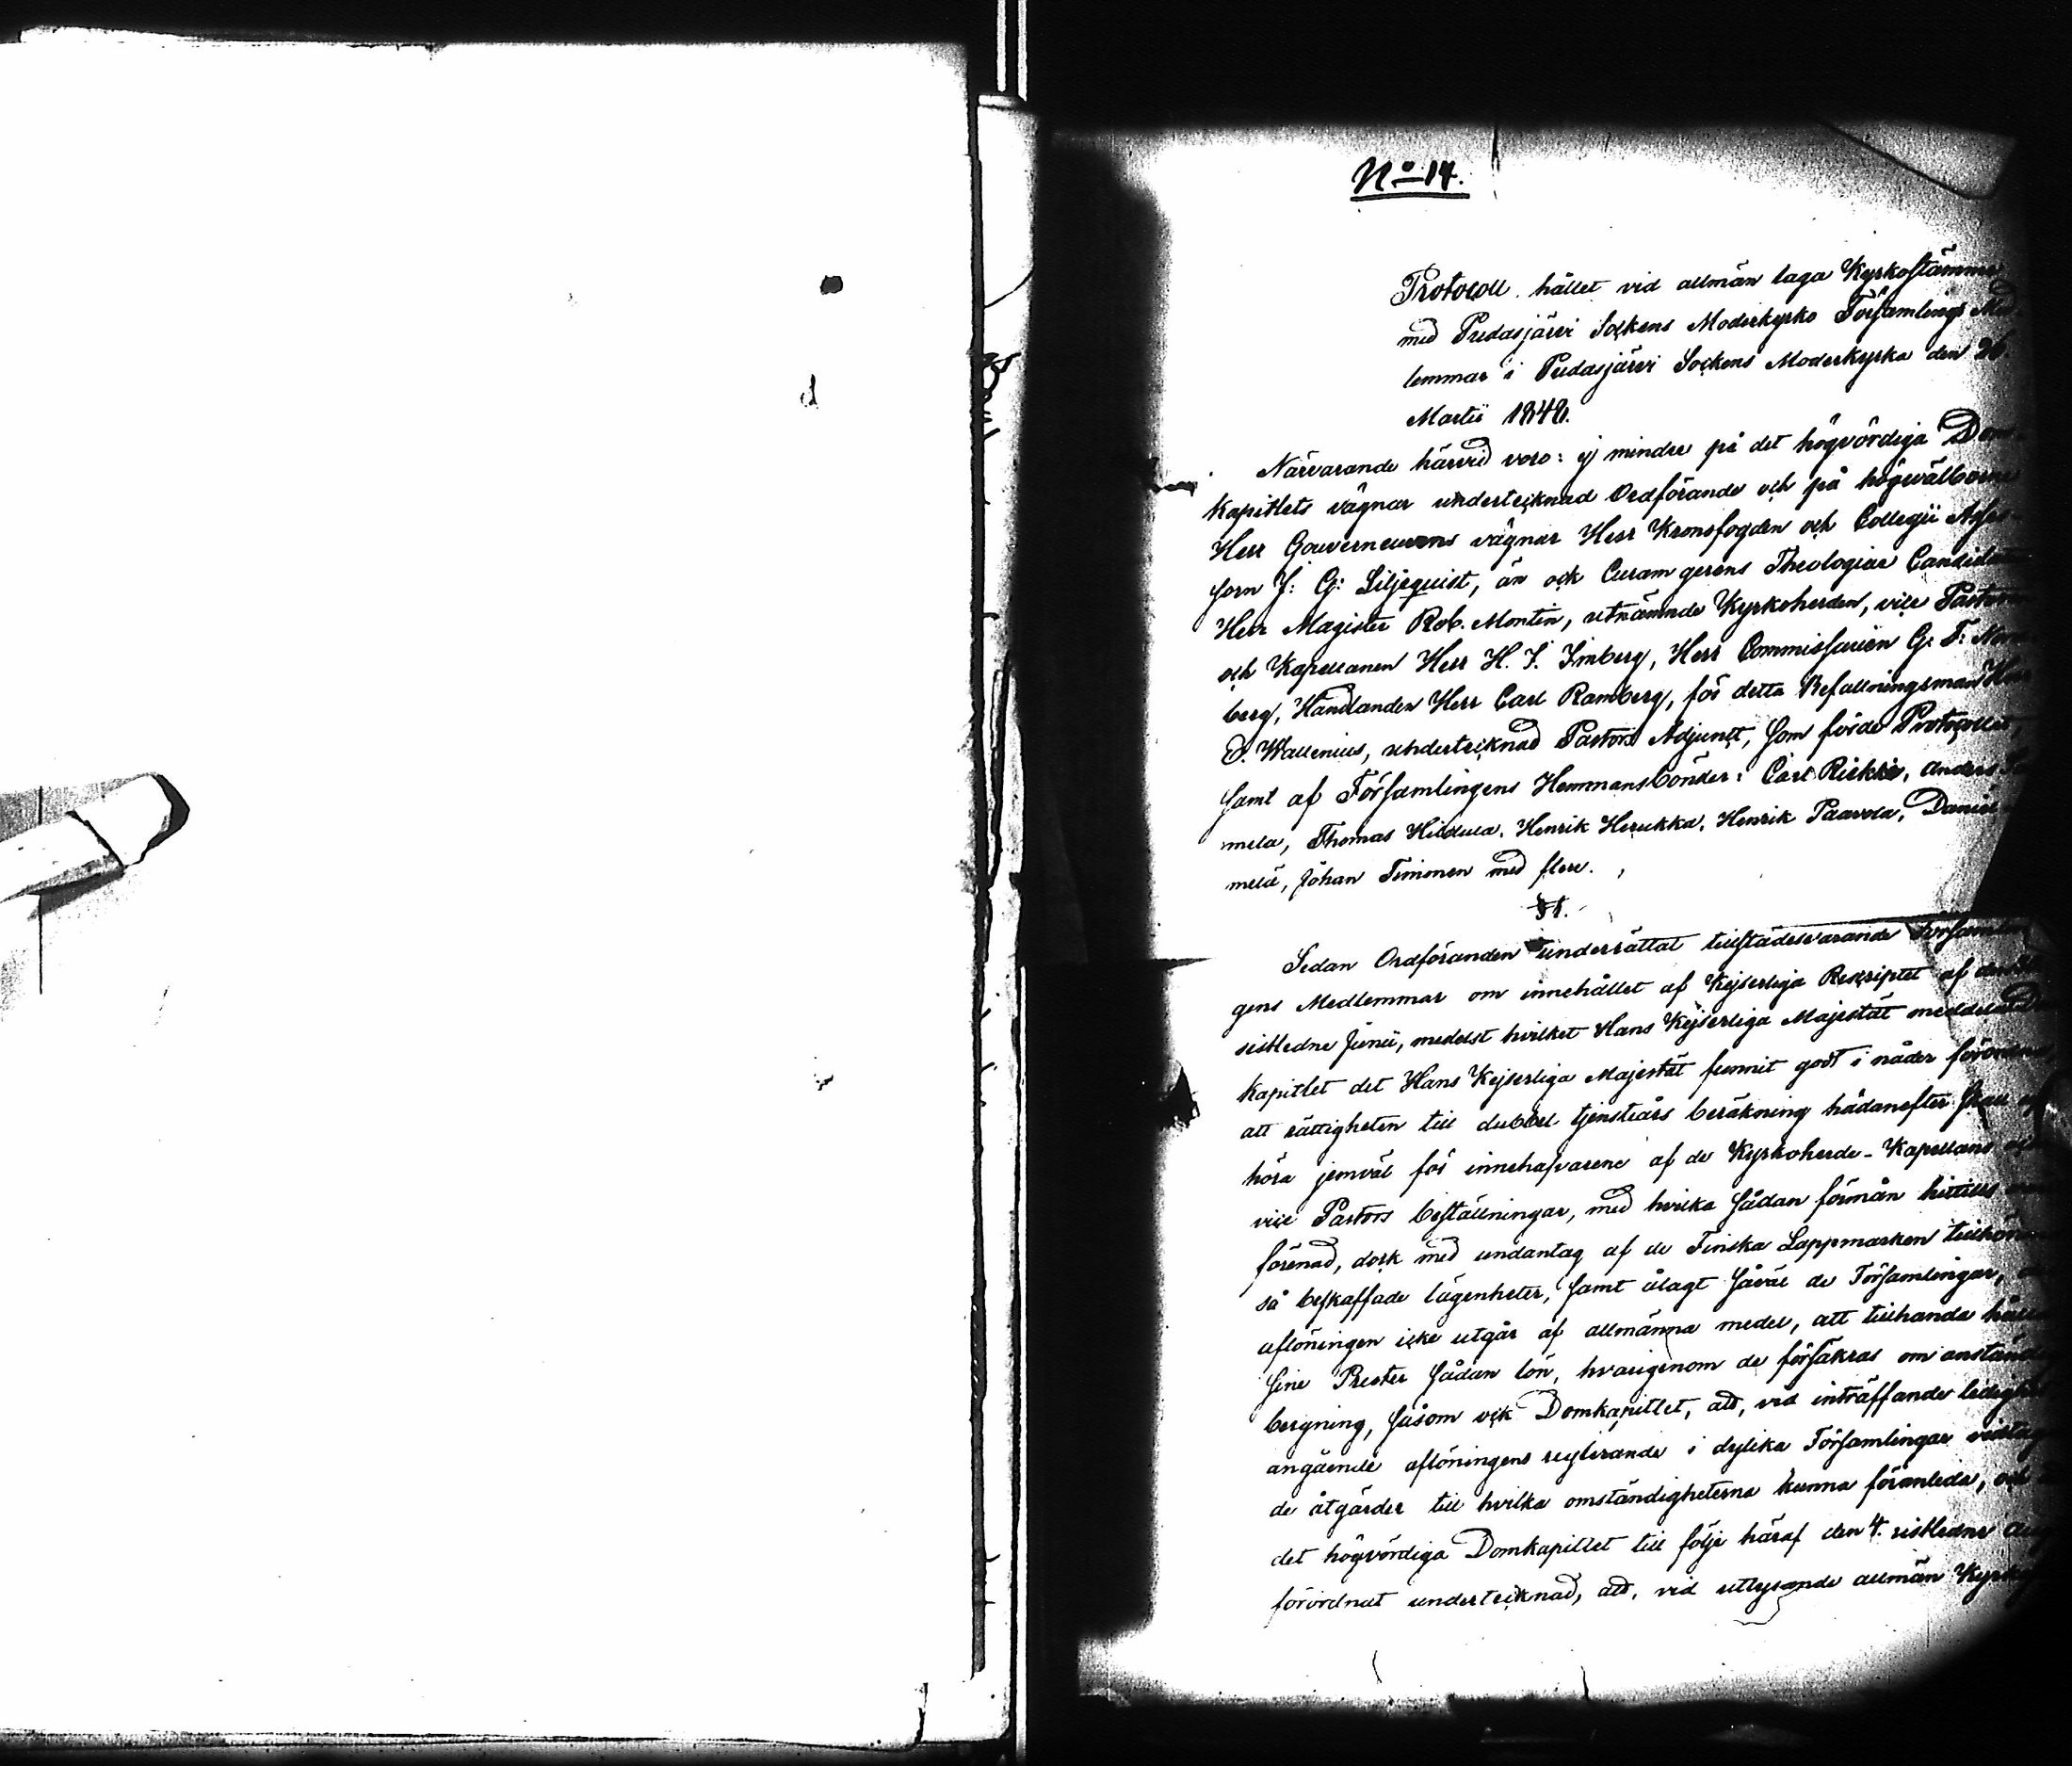 No 14.
Protocoll hållet vid allmän laga Kyrkostämma
med Pudasjärvi Sockens Moderkyrko Församlings Med
lemmar i Pudasjärvi Sockens Moderkyrka den 26.
Martii 1848.
Närvarande härvid voro: ej mindre på det högvördiga Dom
Kapitlets vägnar undertecknad Ordförande och på högvälborne
Herr Gouverneurens vägnar Herr Kronofogden och Collegii Asses
sorn J: G: Liljequist, än ock Curam gerens Theologiae Candidaten
Herr Magister Rob. Montin, utnämnde Kyrkoherden, vice Pastorn
och Kapellanen Herr H. J. Imberg, Herr Commissarien G. F:
berg, Handlanden Herr Carl Ramberg, för detta Befallningsman Herr
Wallenius, undertecknad Pastors Adjunct, som förde Protocollet,
samt af Församlingens Hemmansbönder: Carl Riekki, Anders
mela, Thomas Hiltula, Henrik Herukka, Henrik Paavola, Daniel
melä, Johan Timonen med flere.
§ 1.
Sedan Ordföranden underrättat tillstädesvarande Församlin
gens Medlemmar om innehållet af Kejserliga Reskriptet af den
sistledne Junii, medelst hvilket Hans Kejserliga Majestät meddelat Dom
kapitlet det Hans Kejserliga Majestät funnit godt i nåder förordna,
att rättigheten till dubbel tjensteårs beräkning hädanefter skall upp
höra jemväl för innehafvarene af de Kyrkoherde- Kapellans och
vice Pastors beställningar, med hvilka sådan förmån hittills
förenad, dock med undantag af de Finska Lappmarken tillhörande
så beskaffade lägenheter, samt ålagt såväl de Församlingar,
aflöningen icke utgår af allmänna medel, att tillhanda hålla
sine Prester sådan lön, hvarigenom de försäkras om anständig
bergning, såsom ock Domkapitlet, att, vid inträffande ledighet
angående aflöningens reglerande i dylika Församlingar vidtaga
de åtgärder till hvilka omständigheterna kunna föranleda, och
det högvördiga Domkapitlet till följe häraf den 4. sistledne
förordnat undertecknad, att, vid utlysande allmän